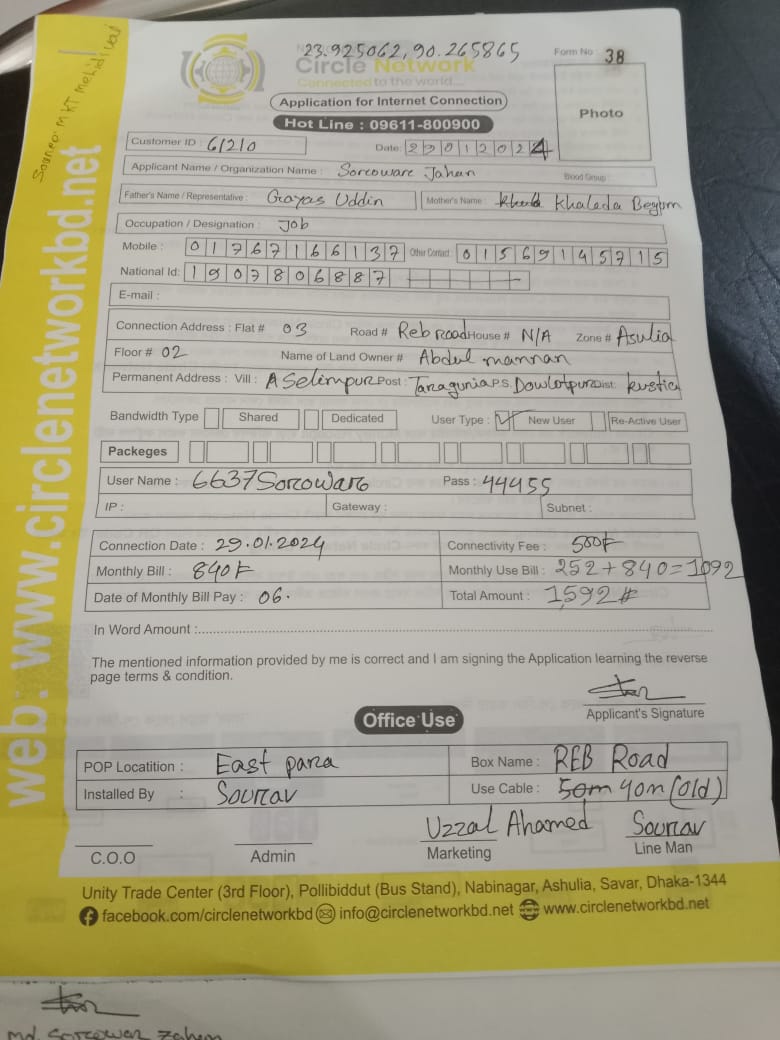 23.925062, 90.265865
Form No : 38
Circle Network
Connected to the world...
Application for Internet Connection
Photo
Hot Line : 09611-800900
Customer ID : 61210
Date: 29012024
Applicant Name / Organization Name : Sorcoware Jahan
Blood Group :
Father's Name / Representative : Gayas Uddin
Mother's Name : Khaleda Begum
Occupation / Designation : Job
Mobile : 01767166137 Other Contact 01569145715
National Id: 1907806887
E-mail :
Connection Address : Flat # 03 Road # Reb Road House # N/A Zone # Asulia
Floor # 02 Name of Land Owner # Abdul mannan
Permanent Address : Vill : A Selimpur Post : Taragunia P.S. Dowlotpur Dist: kustia
Bandwidth Type Shared Dedicated User Type : New User Re-Active User
Packeges
User Name : 6637Sorcoware Pass : 44455
IP : Gateway : Subnet :
Connection Date : 29.01.2024 Connectivity Fee : 500৳
Monthly Bill : 840৳ Monthly Use Bill : 252+840=1092
Date of Monthly Bill Pay : 06. Total Amount : 1,592#
In Word Amount :
The mentioned information provided by me is correct and I am signing the Application learning the reverse
page terms & condition.
Applicant's Signature
Office Use
POP Locatition : East para Box Name : REB Road
Installed By : Sourav Use Cable : 50m 40m (old)
Uzzal Ahamed Sourav
C.O.O Admin Marketing Line Man
Unity Trade Center (3rd Floor), Pollibiddut (Bus Stand), Nabinagar, Ashulia, Savar, Dhaka-1344
facebook.com/circlenetworkbd info@circlenetworkbd.net www.circlenetworkbd.net
web: www.circlenetworkbd.net
md. Sorcowar Zahan